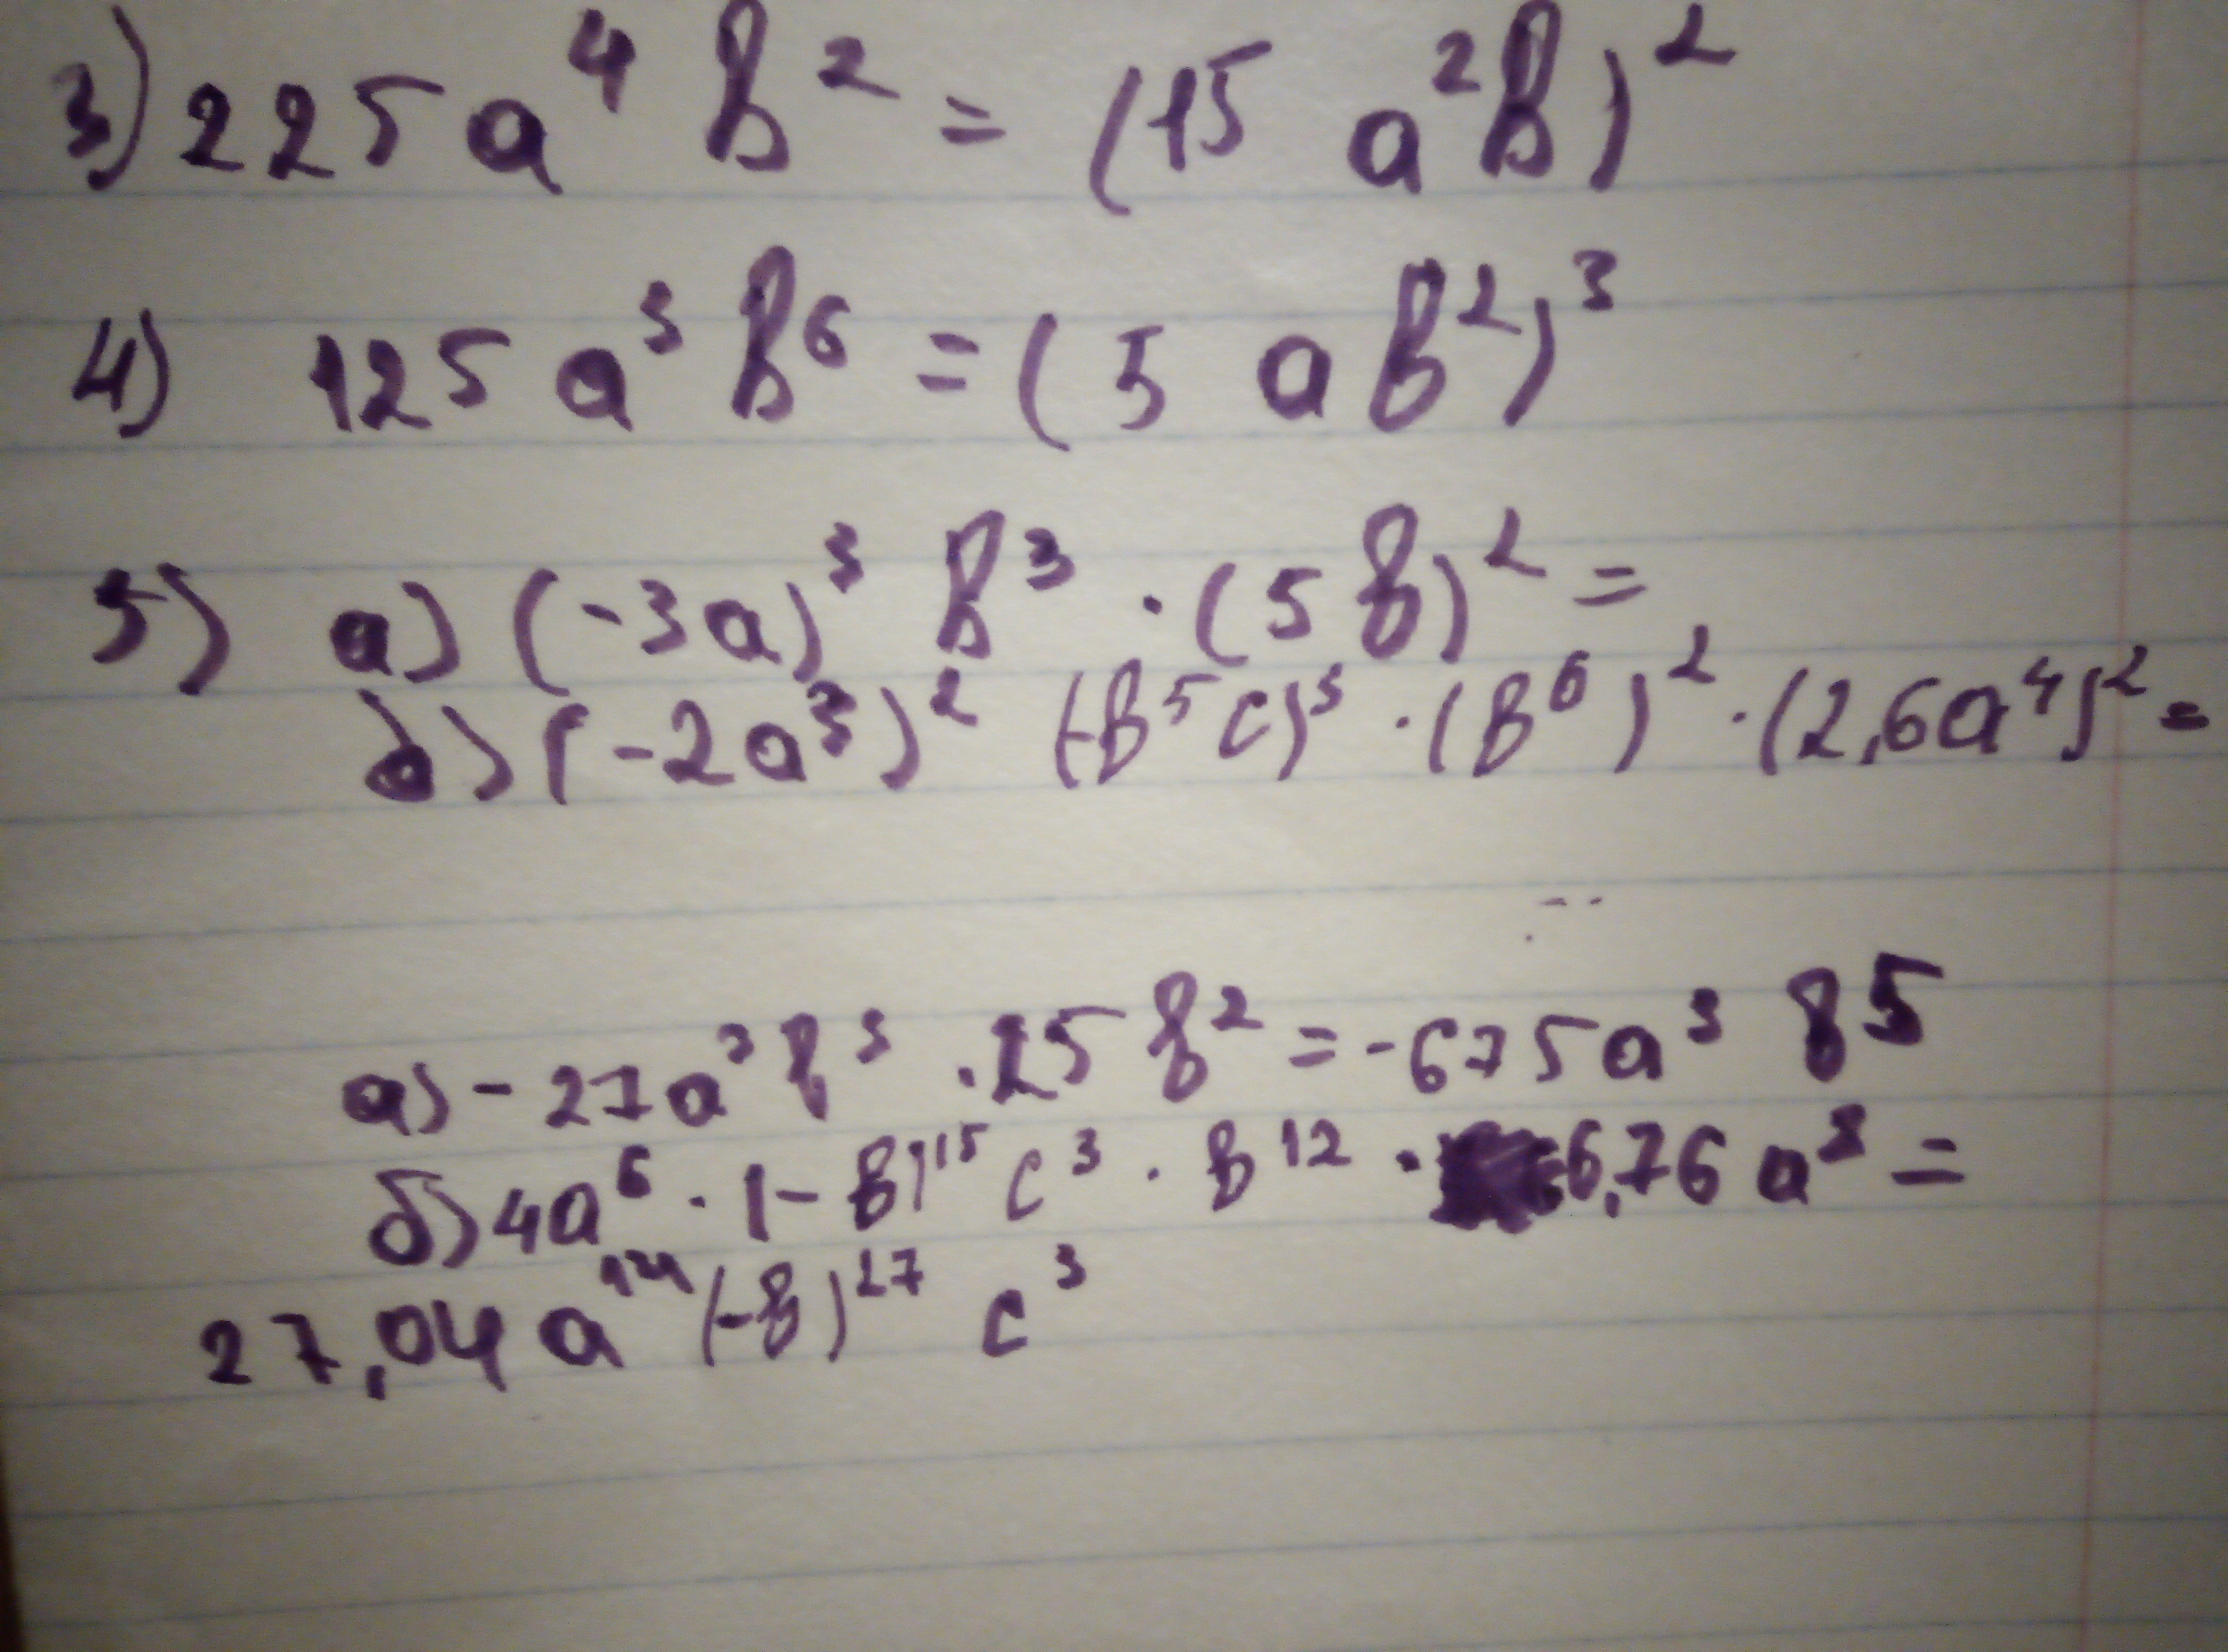 3) 225a⁴ в² = (15 a²в)²
4) 125 a³ в⁶ = (5 a в²)³
5) а) (-3a)³ в³ · (5в)² =
б) (-2a³)² (-в⁵c)³ · (в⁶)² · (2,6a⁴)² =
а) - 27a³ в³ · 25 в² = -675a³ в5
б) 4a⁶ · (-в)¹⁵ c³ · в¹² · 6,76 a⁸ =
27,04 a¹⁴ (-в)²⁷ c³